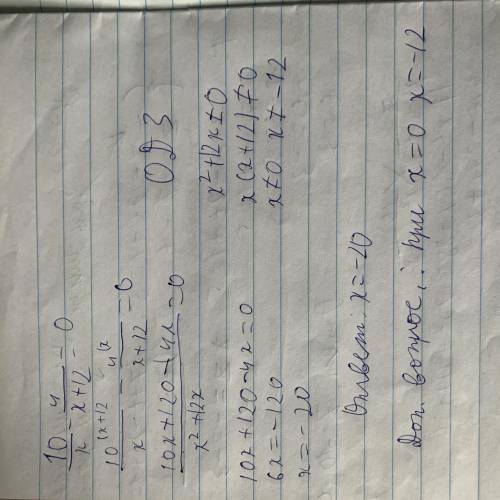 10/x - 4/(x+12) = 0
10^(x+12/x - 4^(x/x+12 = 0
(10x+120-4x)/(x²+12x) = 0
ОДЗ
x²+12x≠0
x(x+12)≠0
x≠0 x≠-12
10x+120-4x=0
6x=-120
x=-20
Ответ: x=-20
Доп. вопрос: при x=0 x=-12